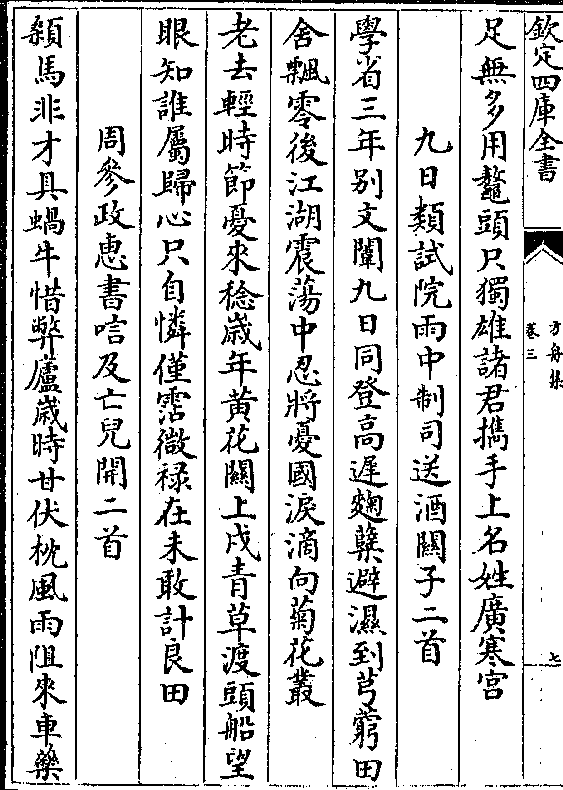 欽定四庫全書
方舟集
卷三
七
足無多用鼇頭只獨雄諸君攜手上名姓廣寒宮
九日類試院雨中制司送酒闗子二首
學省三年别文闈九日同登高遲麴糵避濕到芎藭田
舍飄零後江湖震蕩中忍將憂國淚滴向菊花叢
老去輕時節憂來稔嵗年黄花闗上戍青草渡頭船望
眼知誰屬歸心只自憐僅霑微禄在未敢計良田
周參政惠書唁及亡兒開二首
䫉馬非才具蝸牛惜弊廬嵗時甘伏枕風雨阻來車藥